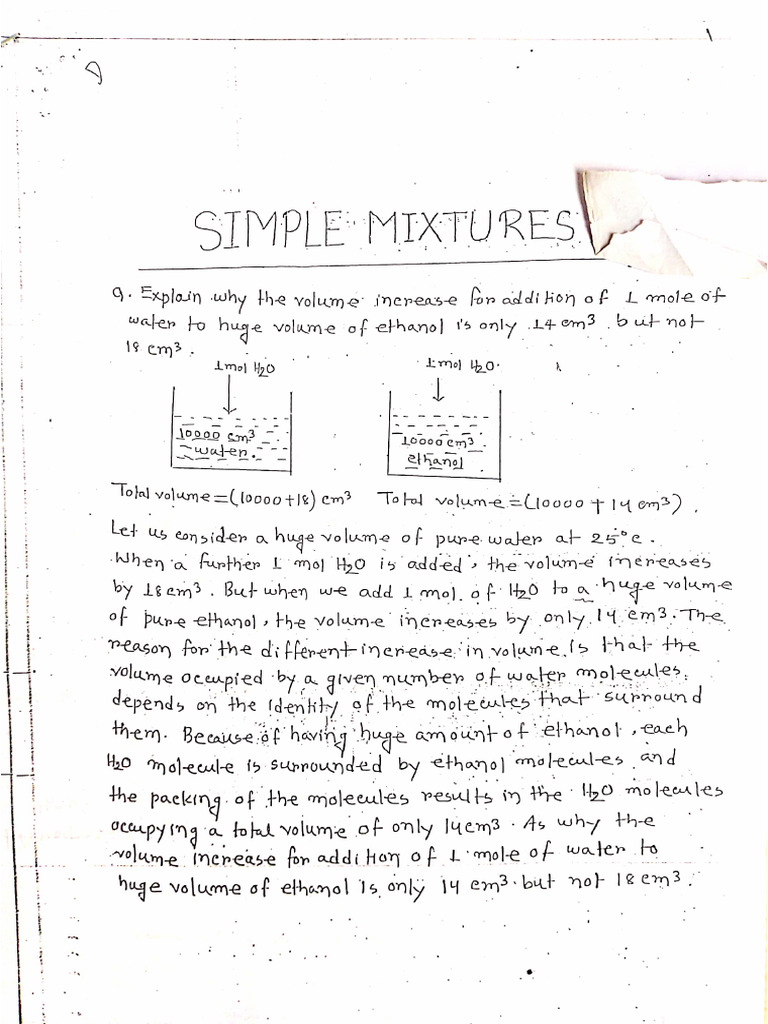 1
SIMPLE MIXTURES
9. Explain why the volume increase for addition of 1 mole of
water to huge volume of ethanol is only 14 cm³ but not
18 cm³.
1mol H₂O
1mol H₂O.
10000 cm³
water.
10000 cm³
ethanol
Total volume = (10000+18) cm³
Total volume = (10000 + 14 cm³).
Let us consider a huge volume of pure water at 25°c.
When a further 1 mol H₂O is added, the volume increases
by 18cm³. But when we add 1 mol. of H₂O to a huge volume
of pure ethanol, the volume increases by only 14 cm³. The
reason for the different increase in volume is that the
volume occupied by a given number of water molecules
depends on the identity of the molecules that surround
them. Because of having huge amount of ethanol, each
H₂O molecule is surrounded by ethanol molecules and
the packing of the molecules results in the H₂O molecules
occupying a total volume of only 14cm³. As why the
volume increase for addition of 1 mole of water to
huge volume of ethanol is only 14 cm³ but not 18 cm³.